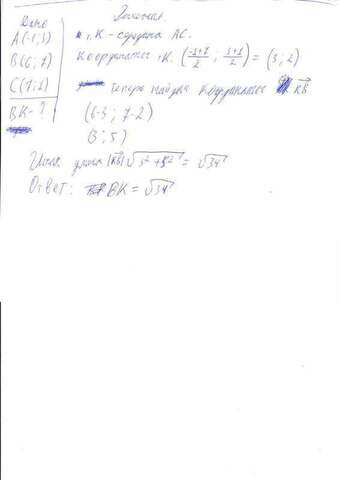 Дано
A(-1;3)
B(6;7)
C(7;1)
BK-?
Решение.
т. K - середина AC.
Координаты т.K. (-1+7/2 ; 3+1/2) = (3;2)
теперь найдём координаты KB
(6-3; 7-2)
(3;5)
длина |KB| √3²+5² = √34
Ответ: BK = √34